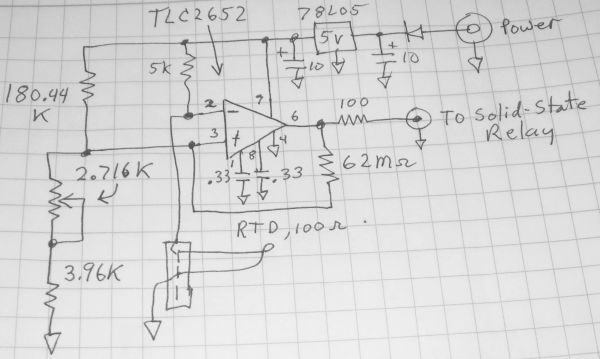 TLC2652
78L05
5V
Power
+
10
+
10
5k
180.44
K
2
7
3
6
4
1
8
−
+
100
To Solid-State
Relay
.33
.33
62mΩ
2.716K
RTD, 100Ω
3.96K